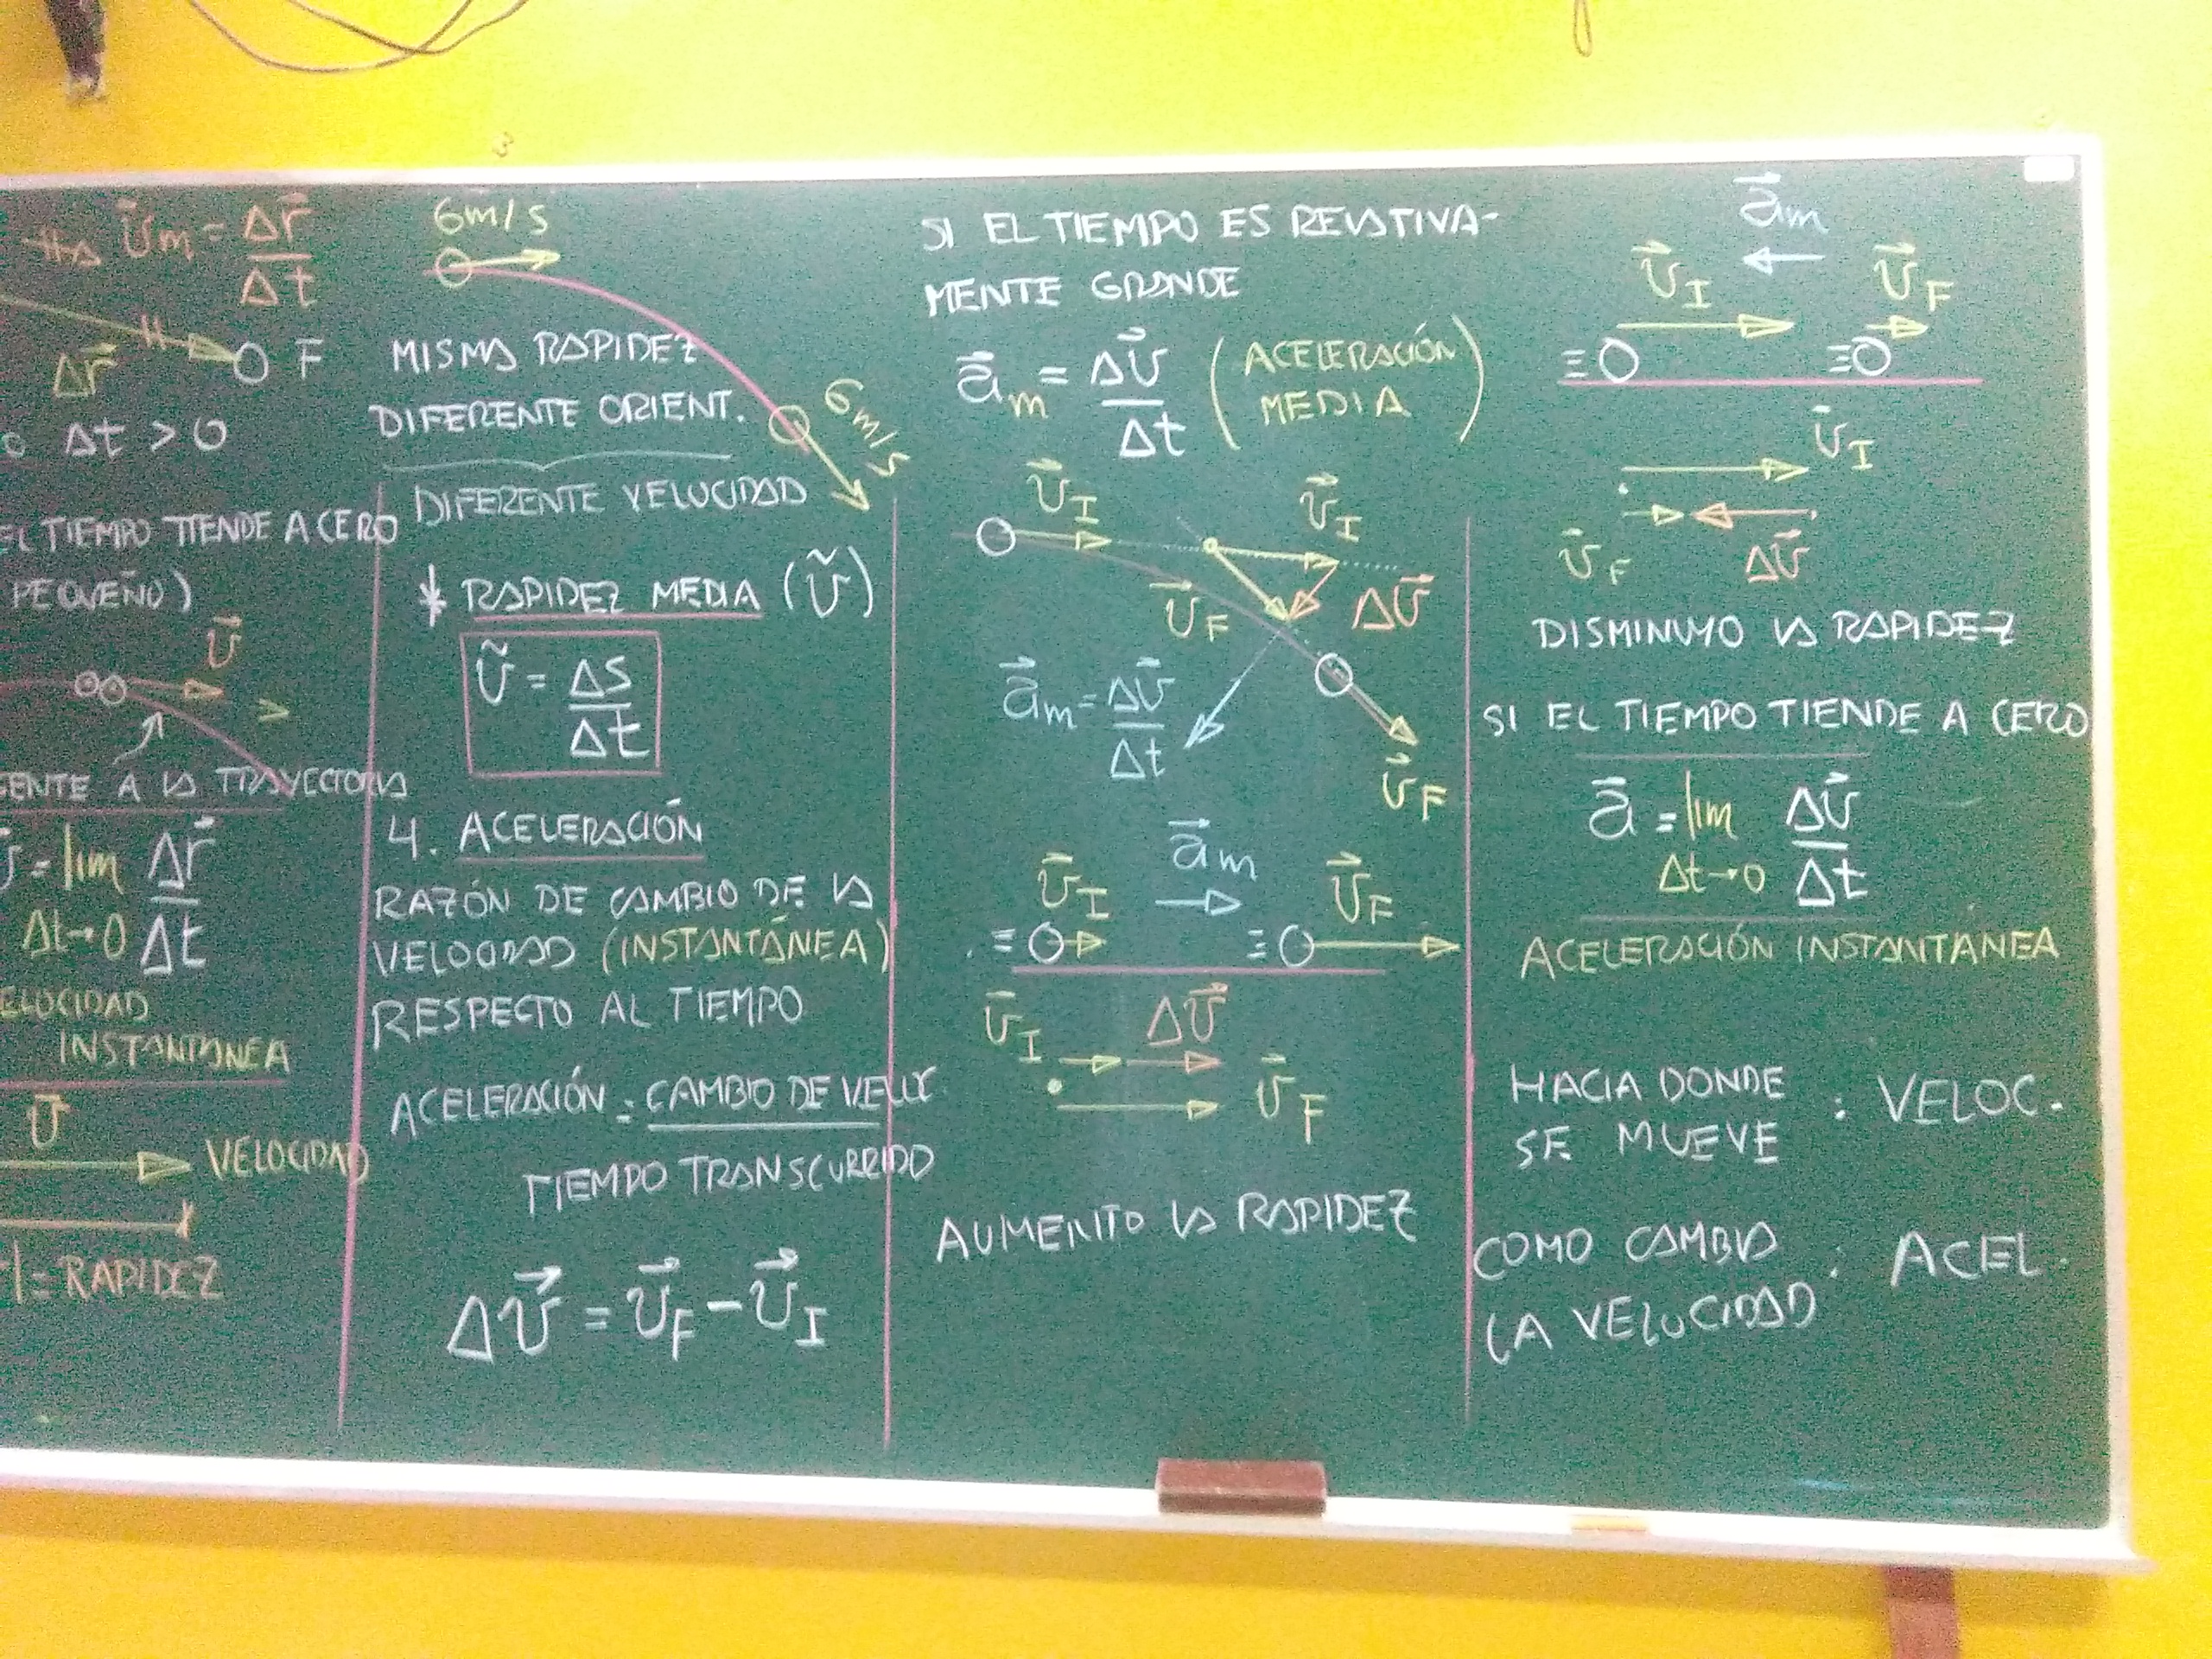 v⃗m = Δr⃗/Δt
Δr⃗
F
Δt > 0
EL TIEMPO TIENDE A CERO
PEQUEÑO)
v⃗
A LA TRAYECTORIA
= lim Δr⃗/Δt
Δt→0
INSTANTANEA
v⃗
VELOCIDAD
= RAPIDEZ
6m/s
MISMA RAPIDEZ
DIFERENTE ORIENT.
6m/s
DIFERENTE VELOCIDAD
* RAPIDEZ MEDIA (ṽ)
ṽ = Δs/Δt
4. ACELERACIÓN
RAZÓN DE CAMBIO DE LA
VELOCIDAD (INSTANTÁNEA)
RESPECTO AL TIEMPO
ACELERACIÓN = CAMBIO DE
TIEMPO TRANSCURRIDO
Δv⃗ = v⃗F - v⃗I
SI EL TIEMPO ES RELATIVA-
MENTE GRANDE
a⃗m = Δv⃗/Δt (ACELERACIÓN
MEDIA)
v⃗I
v⃗I
v⃗F
Δv⃗
a⃗m = Δv⃗/Δt
v⃗F
a⃗m
v⃗I
v⃗F
v⃗I
Δv⃗
v⃗F
AUMENTO LA RAPIDEZ
a⃗m
v⃗I
v⃗F
v⃗I
v⃗F
Δv⃗
DISMINUYO LA RAPIDEZ
SI EL TIEMPO TIENDE A CERO
a⃗ = lim Δv⃗/Δt
Δt→0
ACELERACIÓN INSTANTANEA
HACIA DONDE
SE MUEVE : VELOC.
COMO CAMBIA
LA VELOCIDAD : ACEL.